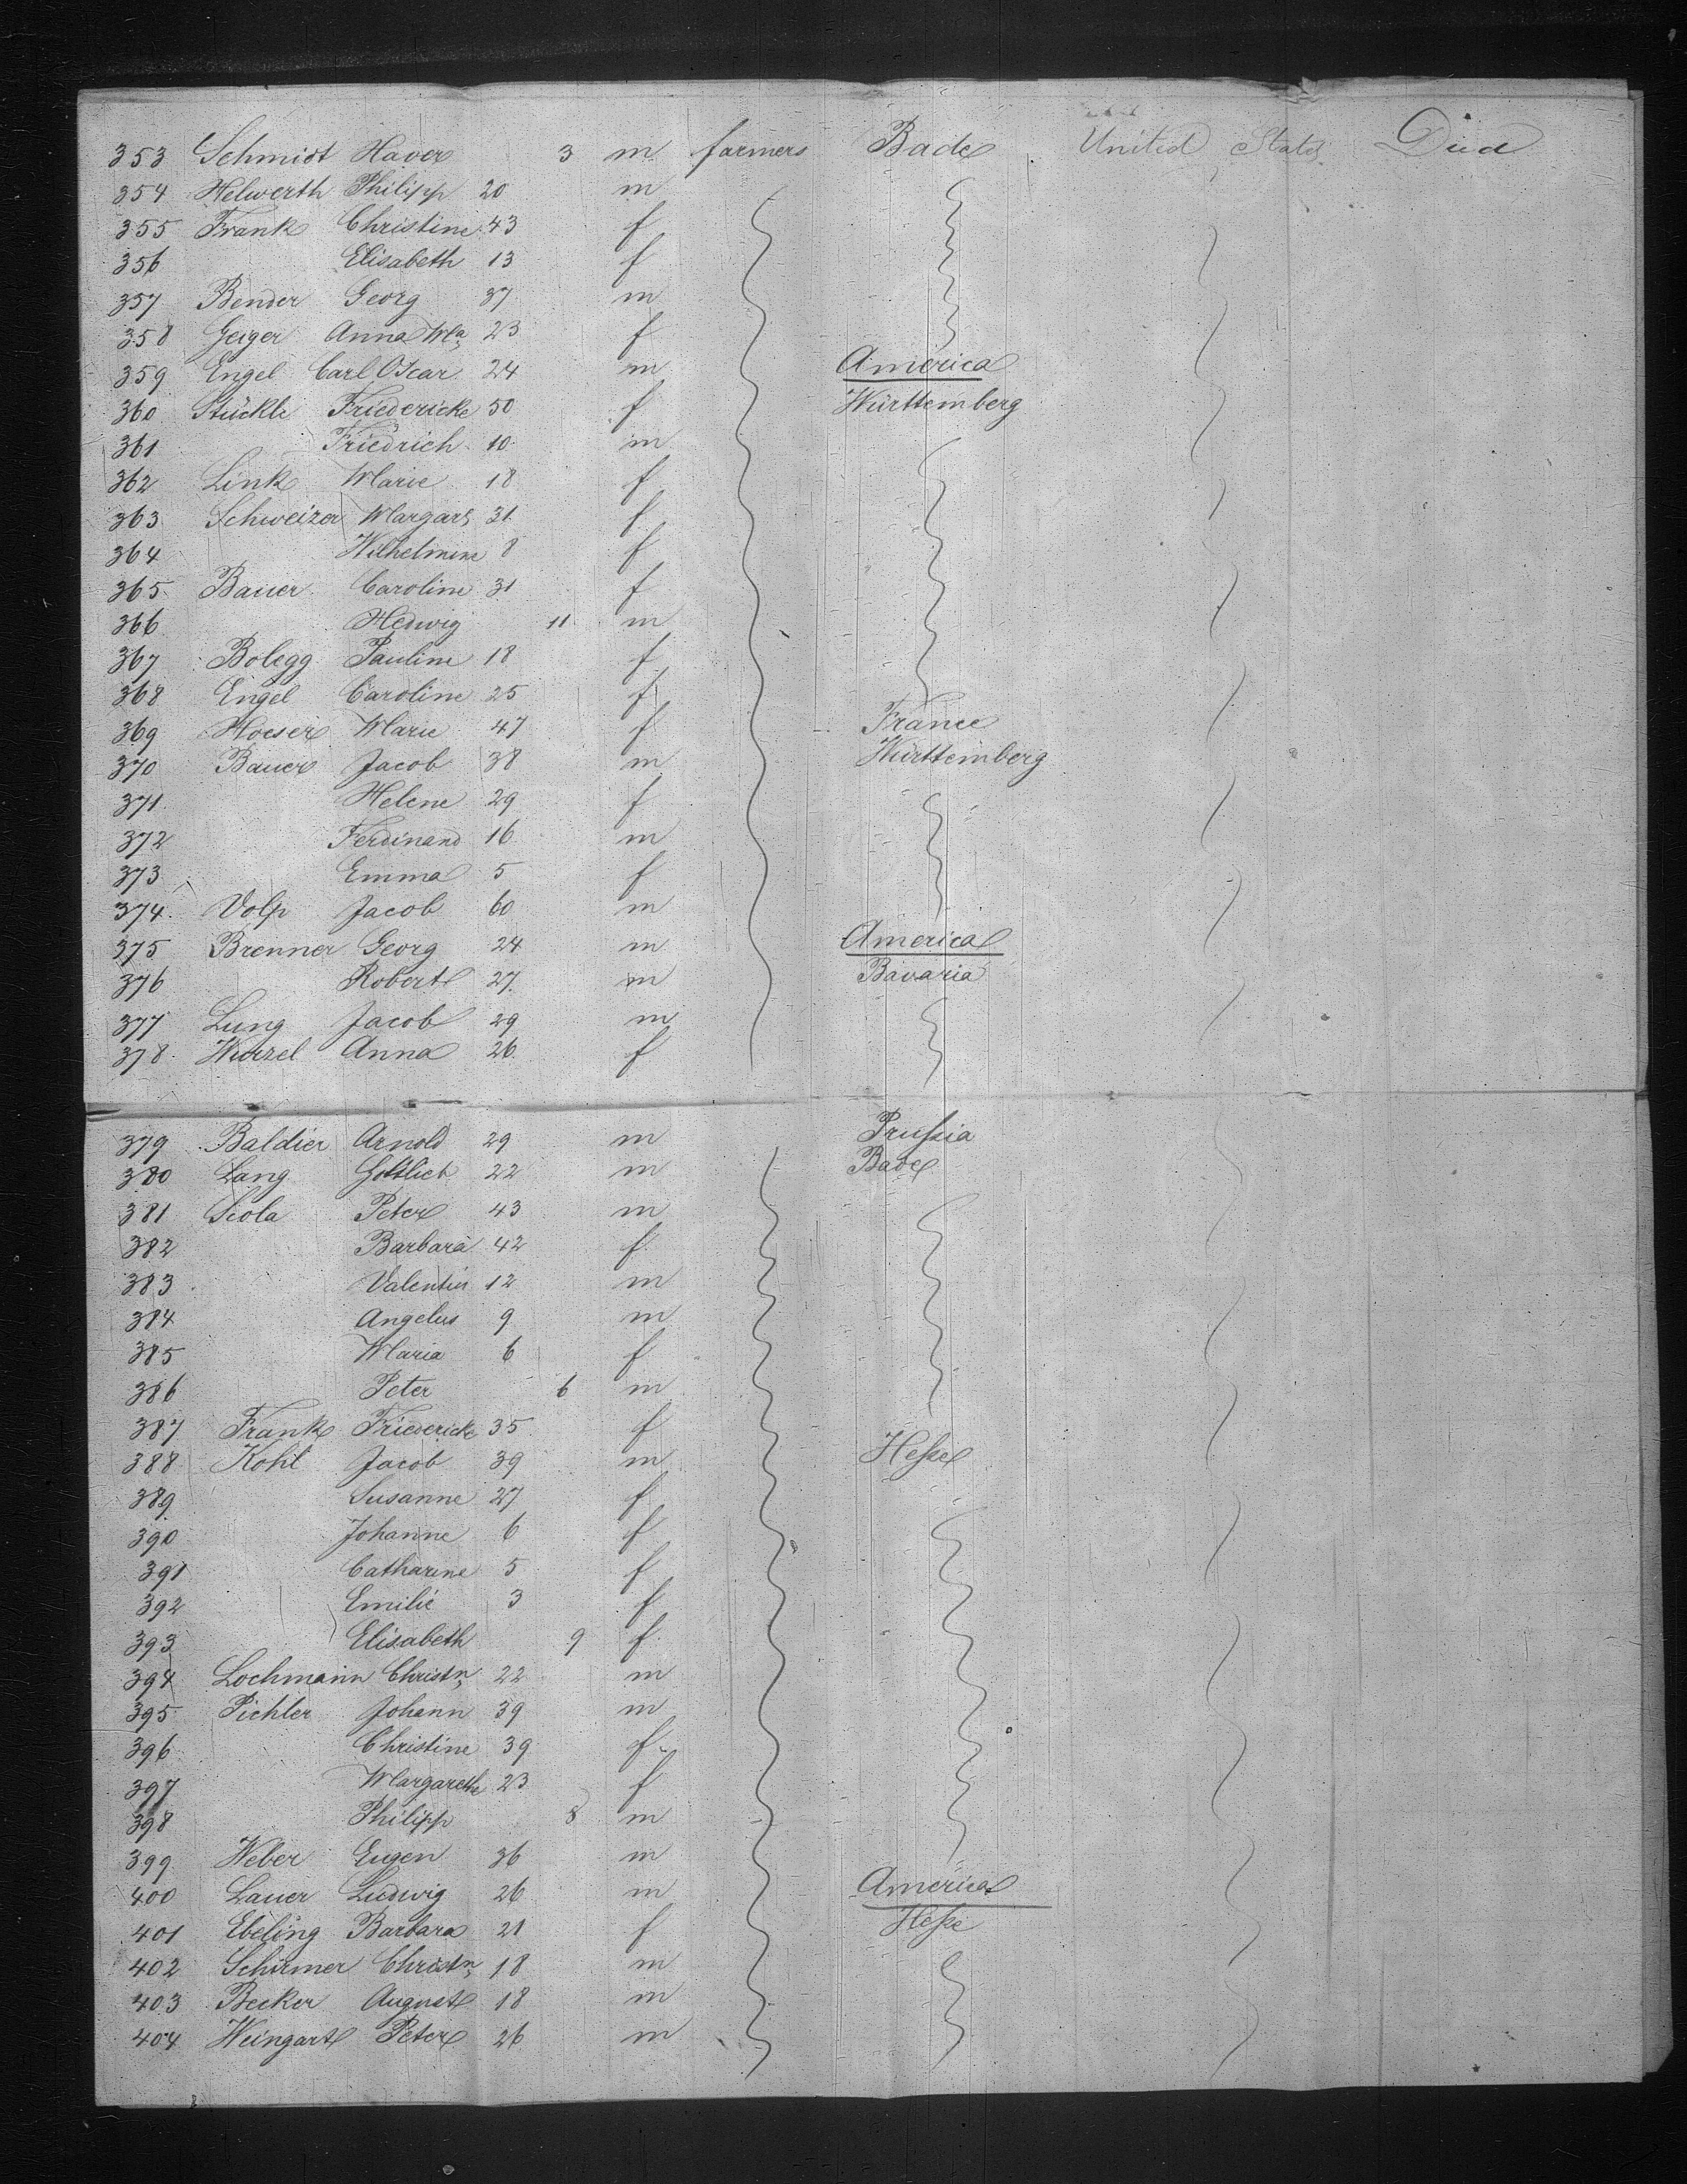 353 Schmidt Xaver 3 m farmers Baden United States Died
354 Helwerth Philipp 20 m
355 Frank Christine 43 f
356 Elisabeth 13 f
357 Bender Georg 37 m
358 Geiger Anna Ma 23 f
359 Engel Carl Oscar 24 m America
360 Stückle Friedericke 50 f Württemberg
361 Friedrich 10 m
362 Link Marie 18 f
363 Schweizer Margar. 31 f
364 Wilhelmine 8 f
365 Bauer Caroline 31 f
366 Hedwig 11 m
367 Bolegg Pauline 18 f
368 Engel Caroline 25 f
369 Marie 47 f France
370 Bauer Jacob 38 m Württemberg
371 Helene 29 f
372 Ferdinand 16 m
373 Emma 5 f
374 Volp Jacob 60 m
375 Brenner Georg 24 m America
376 Robert 27 m Bavaria
377 Lung Jacob 29 m
378 Wurzel Anna 26 f
379 Baldier Arnold 29 m Prussia
380 Lang Gottlieb 22 m Baden
381 Peter 43 m
382 Barbara 42 f
383 Valentin 12 m
384 Angelus 9 m
385 Maria 6 f
386 Peter 6 m
387 Frank Friedericke 35 f
388 Kohl Jacob 39 m Hesse
389 Susanne 27 f
390 Johanne 6 f
391 Catharine 5 f
392 Emilie 3 f
393 Elisabeth 9 f
394 Lochmann Christn 22 m
395 Pichler Johann 39 m
396 Christine 39 f
397 Margareth 23 f
398 Philipp 8 m
399 Weber Eugen 36 m
400 Lauer Ludwig 26 m America
401 Ebeling Barbara 21 f Hesse
402 Schirmer Christn 18 m
403 Becker August 18 m
404 Weingart Peter 26 m